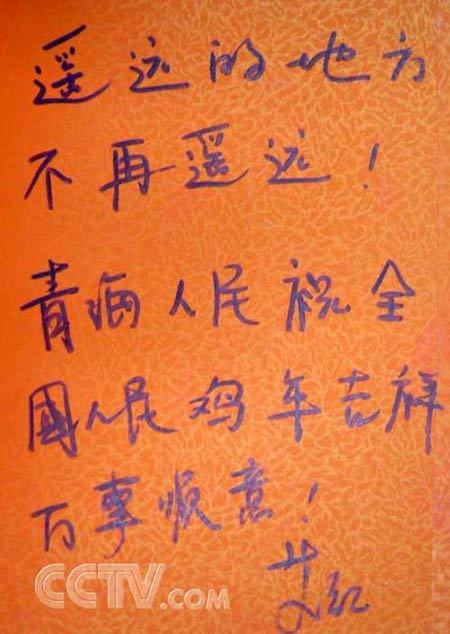 遥远的地方
不再遥远！
青海人民祝全
國人民鸡年吉祥
万事顺意！
CCTV.com